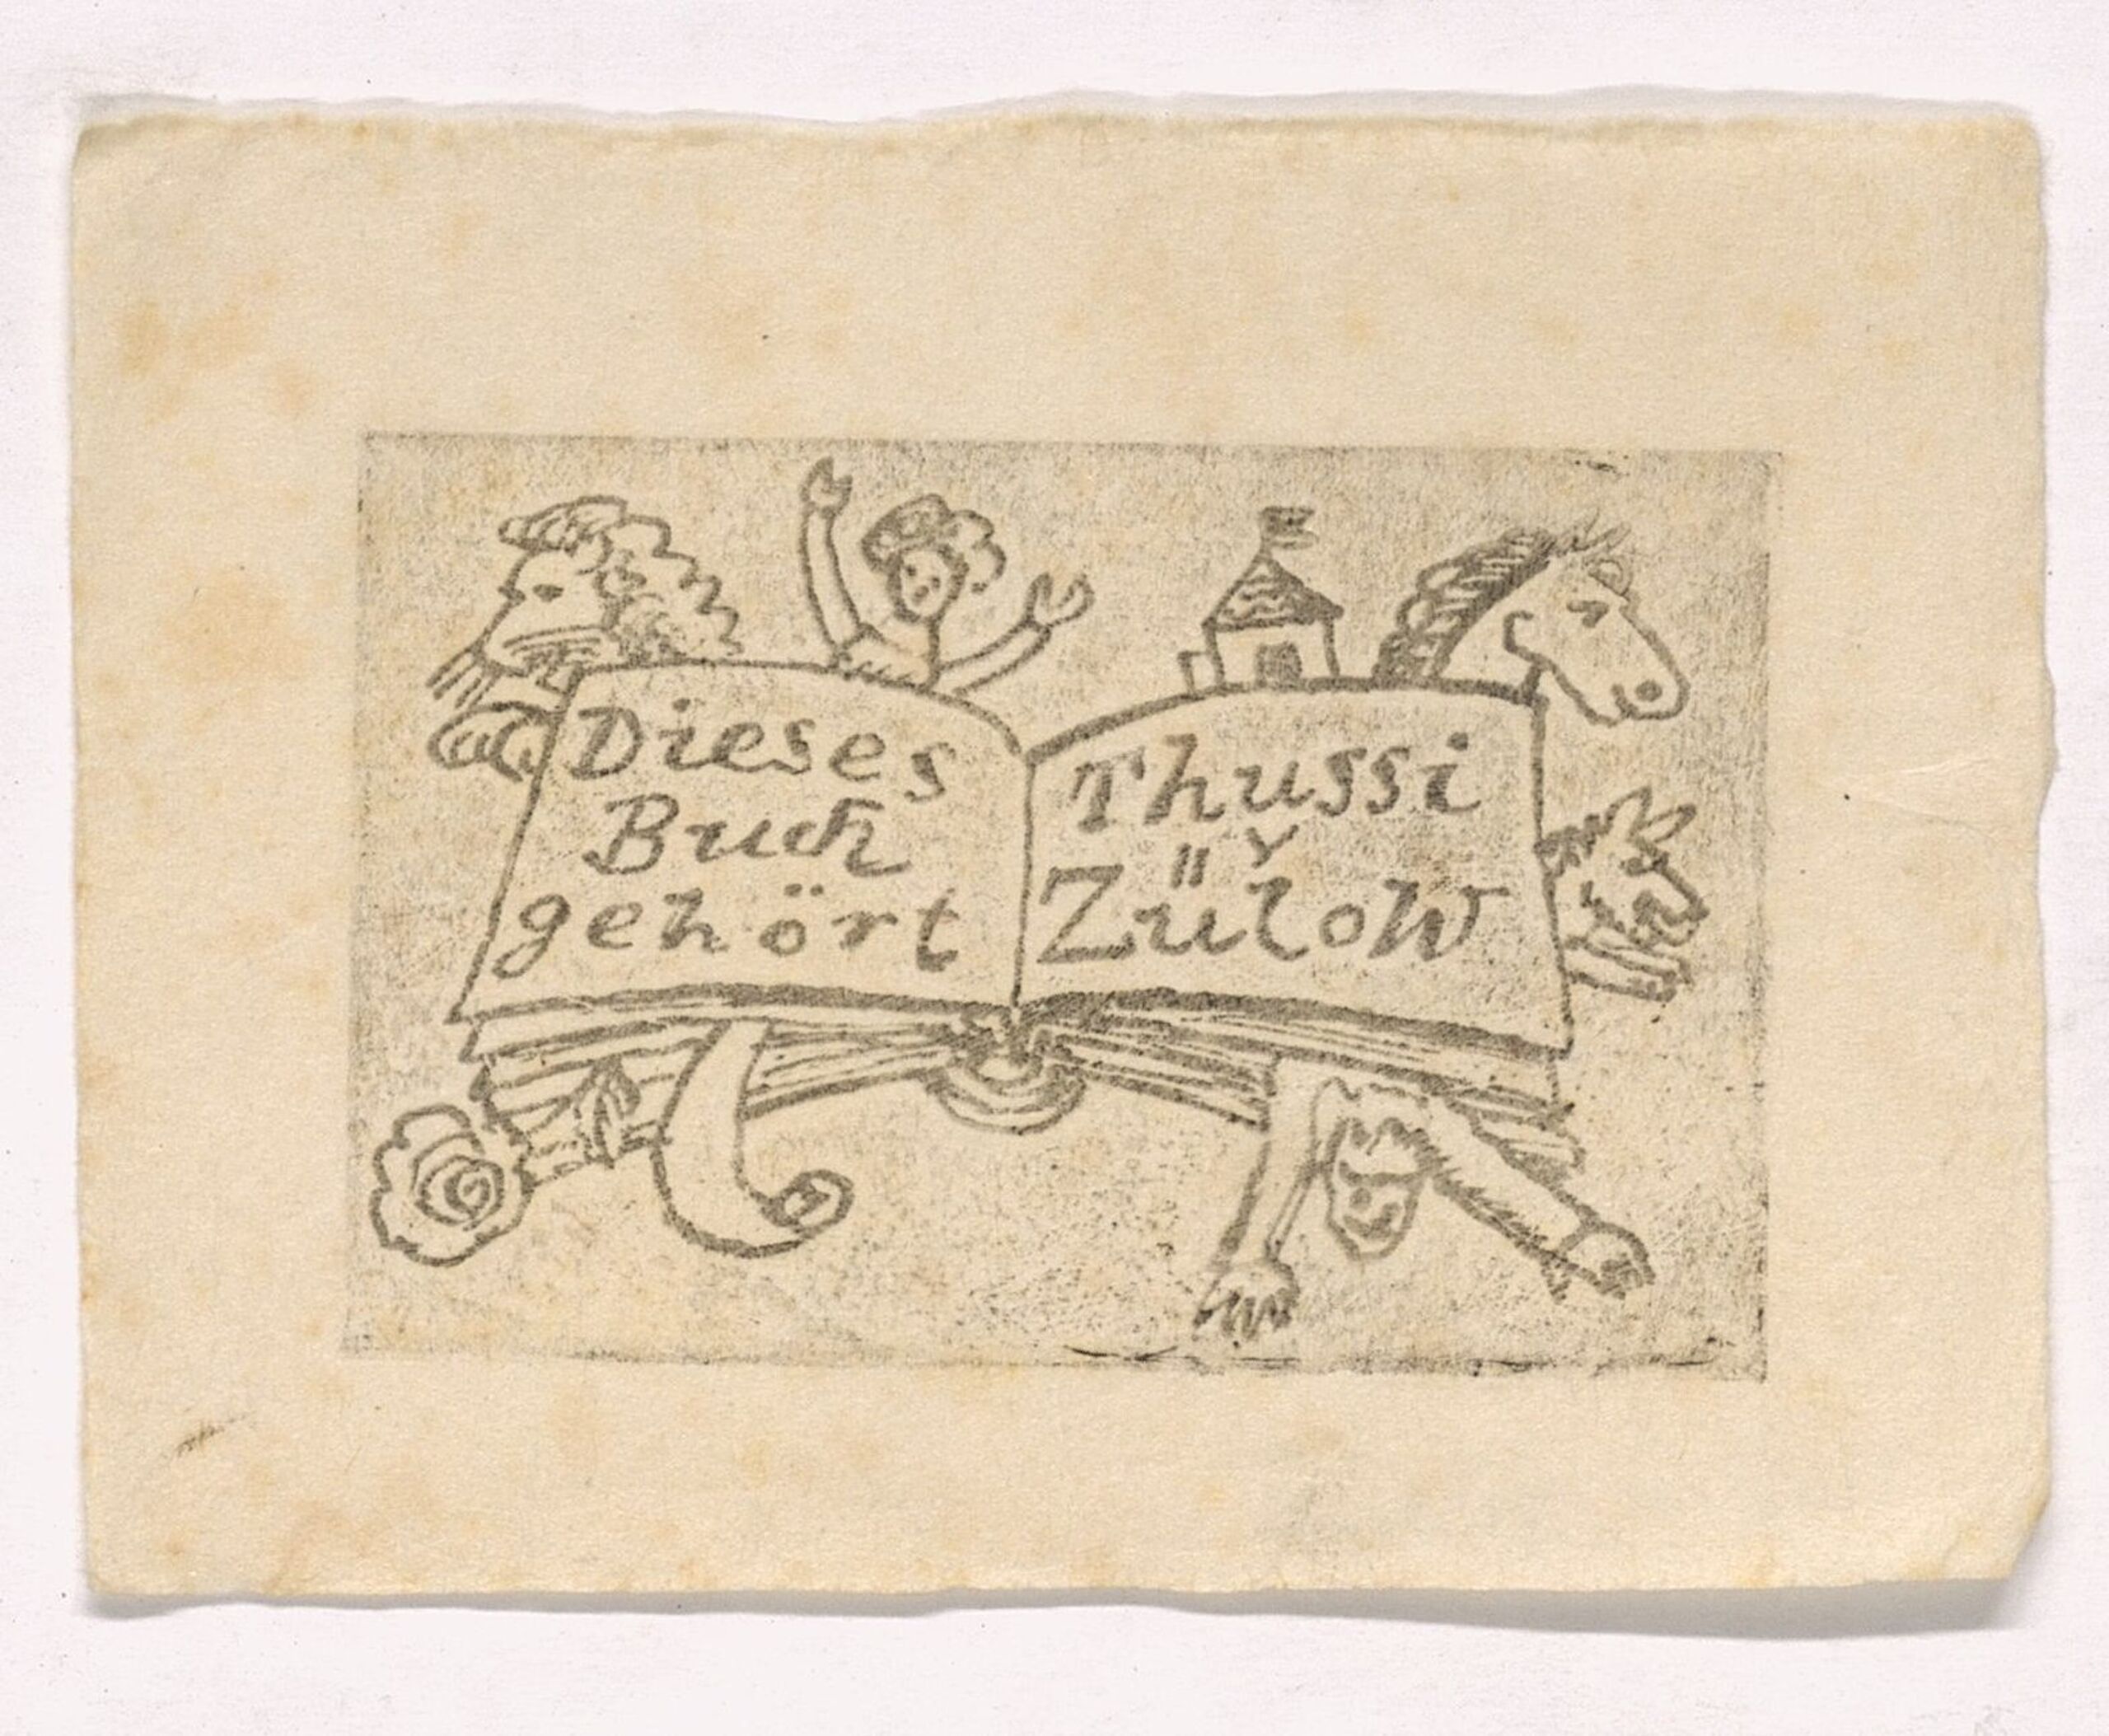 Dieses
Buch
gehört
Thussi
Zülow